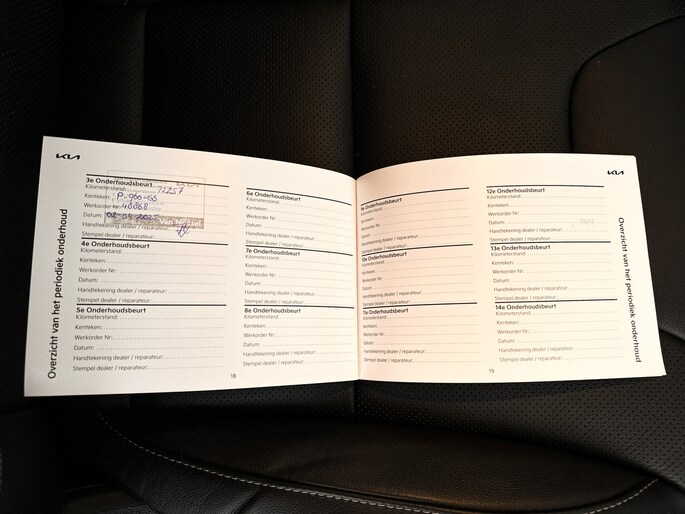 KIA
Overzicht van het periodiek onderhoud
3e Onderhoudsbeurt
Kilometerstand: 72257
Kenteken: P-960-GS
Werkorder Nr: 46068
Datum: 02-04-2025
Van Mossel
Handtekening dealer / reparateur:
Stempel dealer / reparateur:
4e Onderhoudsbeurt
Kilometerstand:
Kenteken:
Werkorder Nr:
Datum:
Handtekening dealer / reparateur:
Stempel dealer / reparateur:
5e Onderhoudsbeurt
Kilometerstand:
Kenteken:
Werkorder Nr:
Datum:
Handtekening dealer / reparateur:
Stempel dealer / reparateur:
6e Onderhoudsbeurt
Kilometerstand:
Kenteken:
Werkorder Nr:
Datum:
Handtekening dealer / reparateur:
Stempel dealer / reparateur:
7e Onderhoudsbeurt
Kilometerstand:
Kenteken:
Werkorder Nr:
Datum:
Handtekening dealer / reparateur:
Stempel dealer / reparateur:
8e Onderhoudsbeurt
Kilometerstand:
Kenteken:
Werkorder Nr:
Datum:
Handtekening dealer / reparateur:
Stempel dealer / reparateur:
18
9e Onderhoudsbeurt
Kilometerstand:
Kenteken:
Werkorder Nr:
Datum:
Handtekening dealer / reparateur:
Stempel dealer / reparateur:
10e Onderhoudsbeurt
Kilometerstand:
Kenteken:
Werkorder Nr:
Datum:
Handtekening dealer / reparateur:
Stempel dealer / reparateur:
11e Onderhoudsbeurt
Kilometerstand:
Kenteken:
Werkorder Nr:
Datum:
Handtekening dealer / reparateur:
Stempel dealer / reparateur:
KIA
12e Onderhoudsbeurt
Kilometerstand:
Kenteken:
Werkorder Nr:
Datum:
Handtekening dealer / reparateur:
Stempel dealer / reparateur:
13e Onderhoudsbeurt
Kilometerstand:
Kenteken:
Werkorder Nr:
Datum:
Handtekening dealer / reparateur:
Stempel dealer / reparateur:
14e Onderhoudsbeurt
Kilometerstand:
Kenteken:
Werkorder Nr:
Datum:
Handtekening dealer / reparateur:
Stempel dealer / reparateur:
19
Overzicht van het periodiek onderhoud